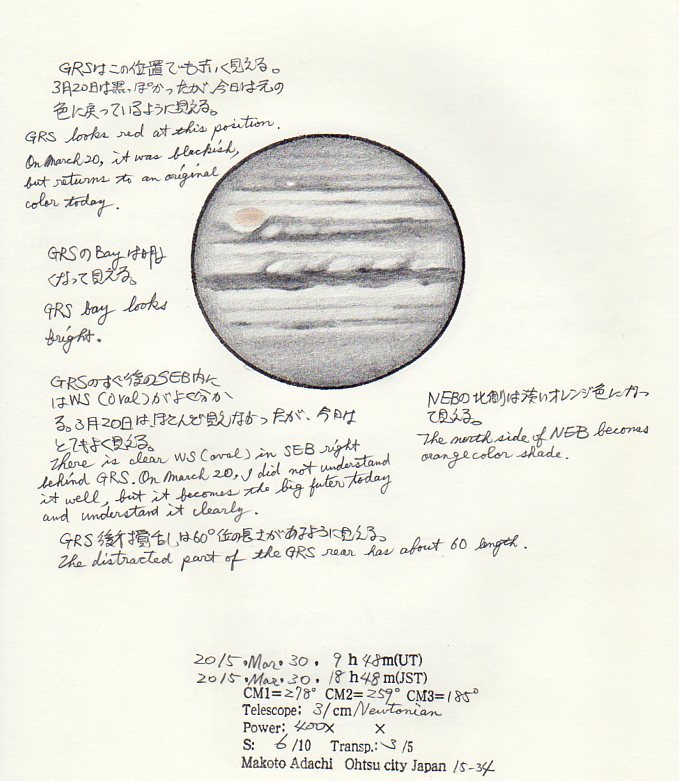 GRSはこの位置でも赤く見える。
3月20日は黒っぽかったが、今日は元の
色に戻っているように見える。
GRS looks red at this position.
On March 20, it was blackish,
but returns to an original
color today.
GRSのBayは明る
くなって見える。
GRS bay looks
bright.
GRSのすぐ後のSEB内に
はWS(oval)がよく分か
る。3月20日はほとんど見えなかったが、今日は
とてもよく見える。
There is clear WS(oval) in SEB right
behind GRS. On March 20, I did not understand
it well, but it becomes the big futer today
and understand it clearly.
NEBの北側は淡いオレンジ色になっ
て見える。
The north side of NEB becomes
orange color shade.
GRS後方攪乱は60°位の長さがあるように見える。
The distracted part of the GRS rear has about 60 length.
2015, Mar, 30, 9 h 48m(UT)
2015, Mar, 30, 18 h 48m(JST)
CM1=278° CM2=259° CM3=185°
Telescope; 31cm Newtonian
Power; 400× ×
S: 6/10 Transp.: 3/5
Makoto Adachi Ohtsu city Japan 15-34